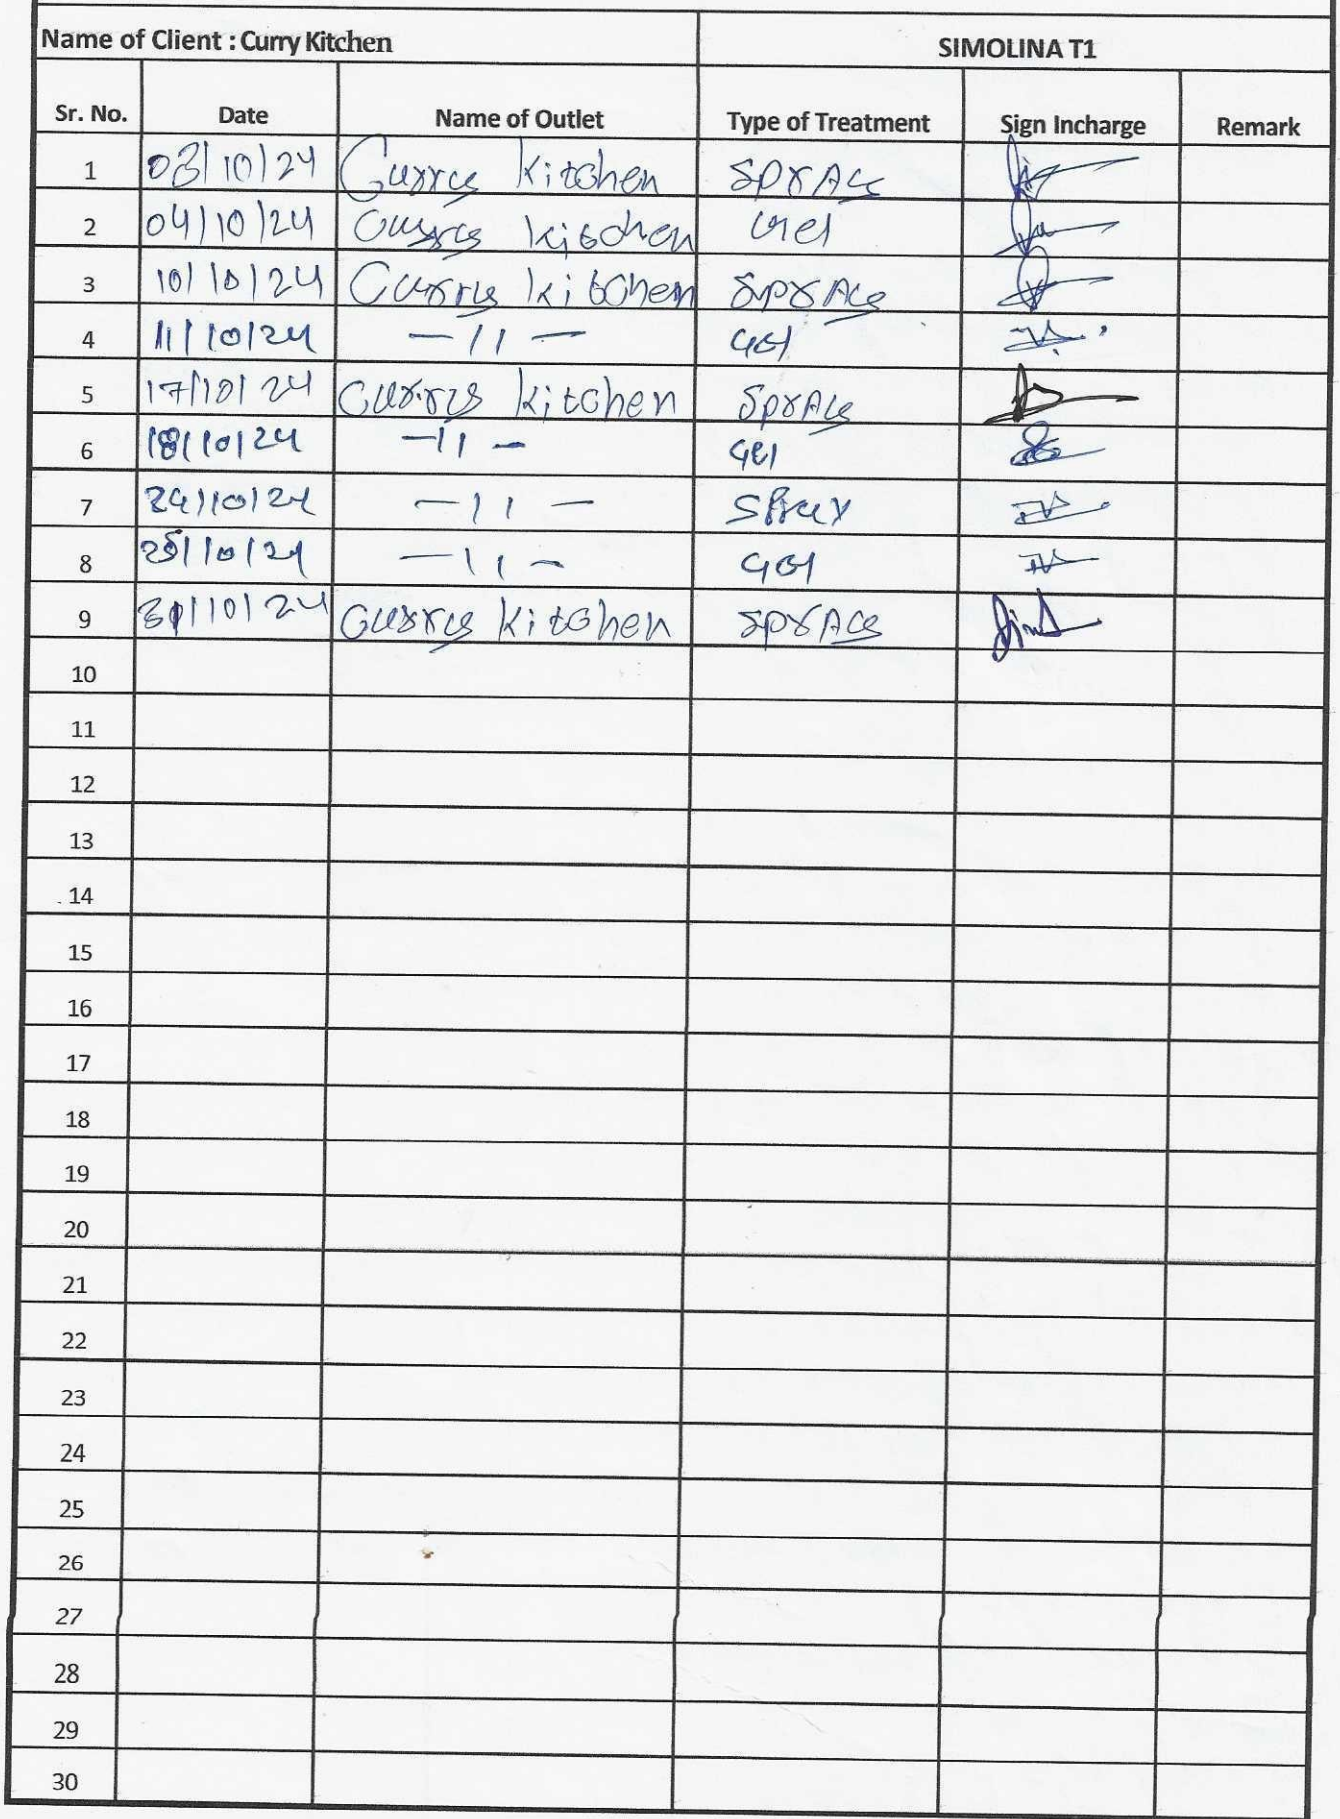 Name of Client : Curry Kitchen SIMOLINA T1
Sr. No. Date Name of Outlet Type of Treatment Sign Incharge Remark
1 03/10/24 Curry Kitchen Spray
2 04/10/24 Curry Kitchen Gel
3 10/10/24 Curry Kitchen Spray
4 11/10/24 —11— Gel
5 17/10/24 Curry Kitchen Spray
6 18/10/24 —11— Gel
7 24/10/24 —11— Spray
8 25/10/24 —11— Gel
9 31/10/24 Curry Kitchen Spray
10
11
12
13
14
15
16
17
18
19
20
21
22
23
24
25
26
27
28
29
30